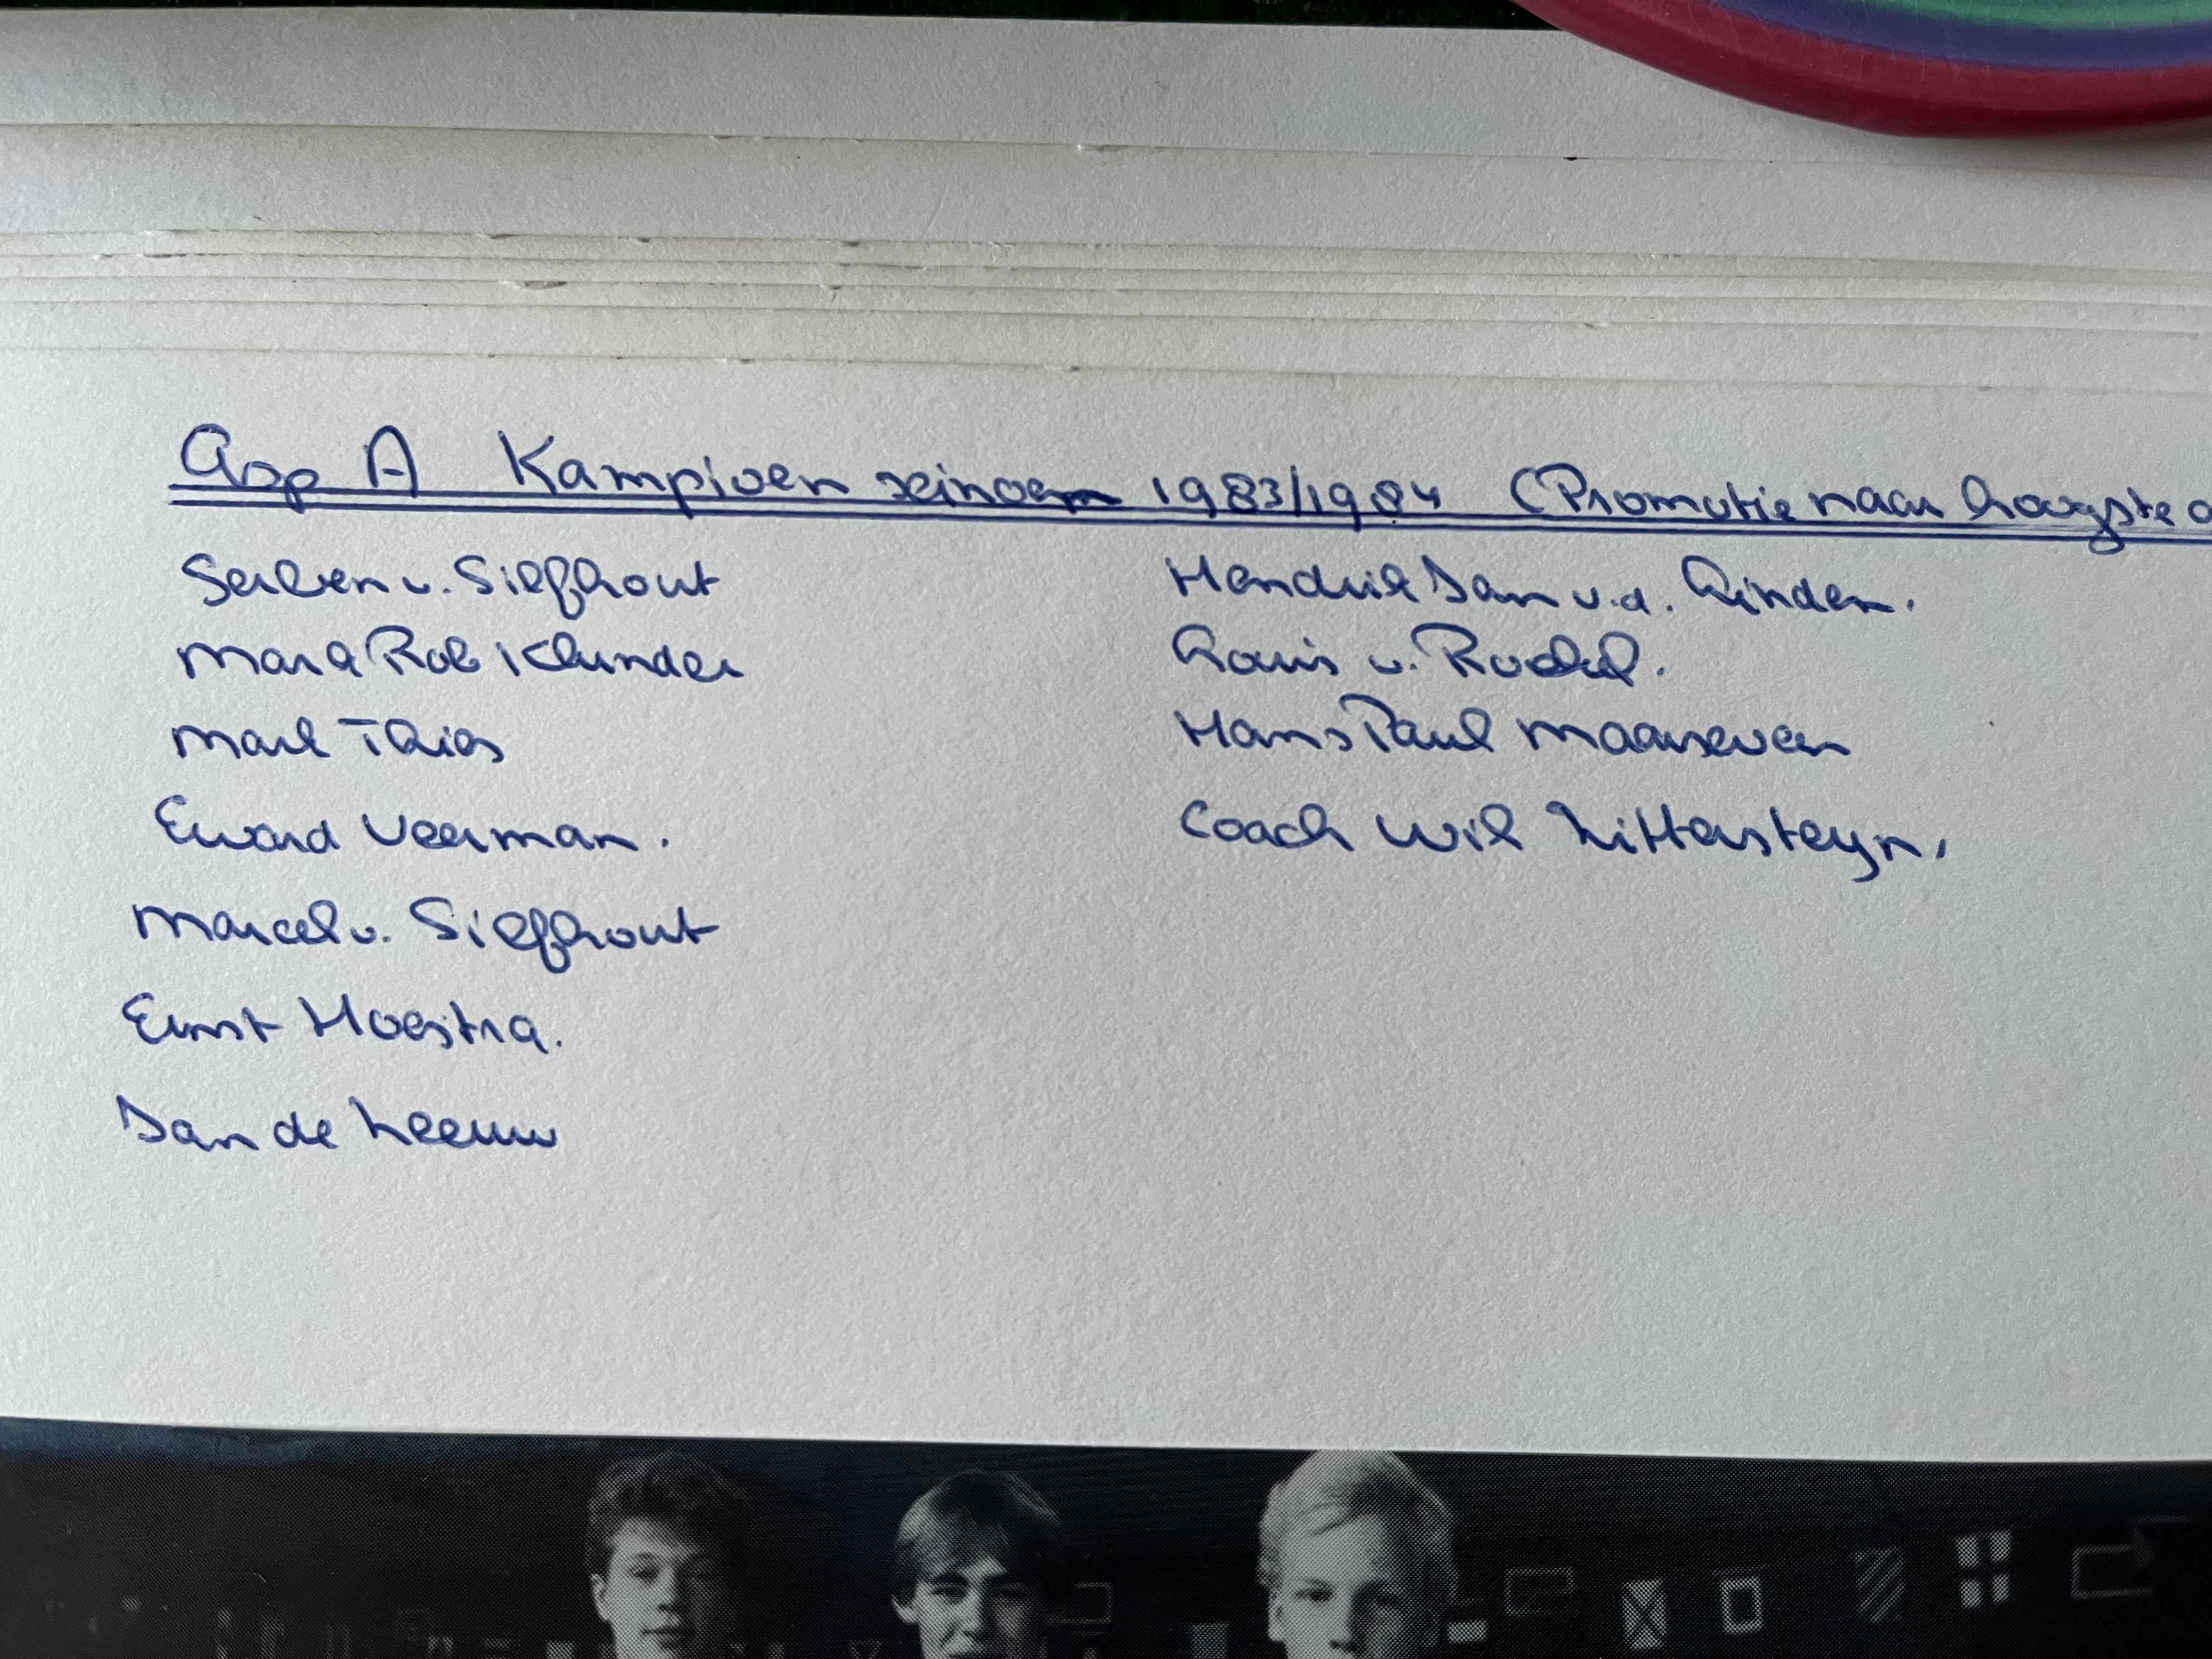 Asp A Kampioen seizoen 1983/1984 (Promotie naar hoogste
Serben v. Silfhout
Mark Rob Klunder
Mark Thies
Eward Veerman.
Marcel v. Silfhout
Ernst Hoestra.
Jan de Leeuw
Hendrik Jan v.d. Linden.
Louis v. Roekel.
Hans Paul Maarseveen
Coach Wil Littersteyn.